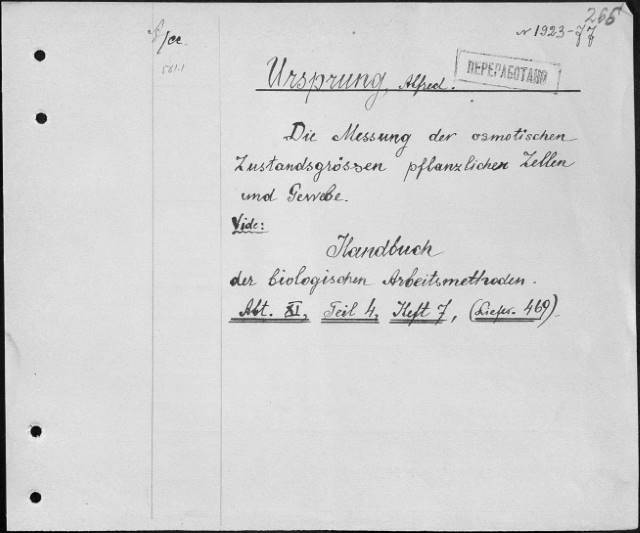 266
№ 1923-77
561.1
Ursprung, Alfred.
ПЕРЕРАБОТАНО
Die Messung der osmotischen
Zustandsgrössen pflanzlichen Zellen
und Gewebe.
Vide:
Handbuch
der biologischen Arbeitsmethoden.
Abt. XI, Teil 4, Heft 7, (Liefer. 469).